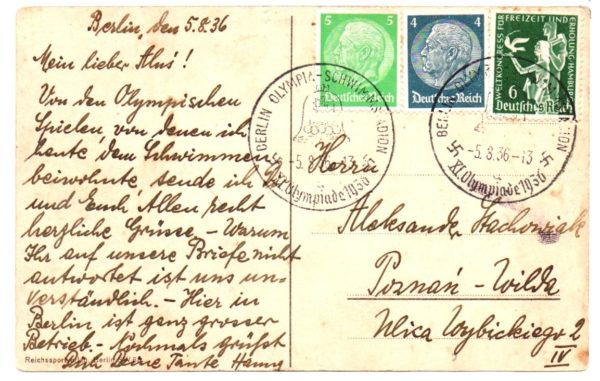 Berlin, den 5.8.36
Mein lieber
Von den Olympischen
Spielen von denen ich
heute dem Schwimmen
beiwohnte, sende ich Dir
und Euch Allen recht
herzliche Grüsse. – Warum
Ihr auf unsere Briefe nicht
antwortet ist uns un-
verständlich. – Hier in
Berlin ist ganz grosser
Betrieb. – Nochmals grüsst
Deine Tante Hanny
Reichssport Berlin
5 5
Deutsches Reich
4 4
Deutsches Reich
WELTKONGRESS FÜR FREIZEIT UND ERHOLUNG HAMBURG
6
Deutsches Reich
BERLIN OLYMPIA-SCHWIMMSTADION
-5.8.36-13
XI. Olympiade 1936
BERLIN OLYMPIA-SCHWIMMSTADION
-5.8.36-13
XI. Olympiade 1936
Herrn
Aleksander Stachowiak
Poznań – Wilda
Ulica Wybickiego 2
IV